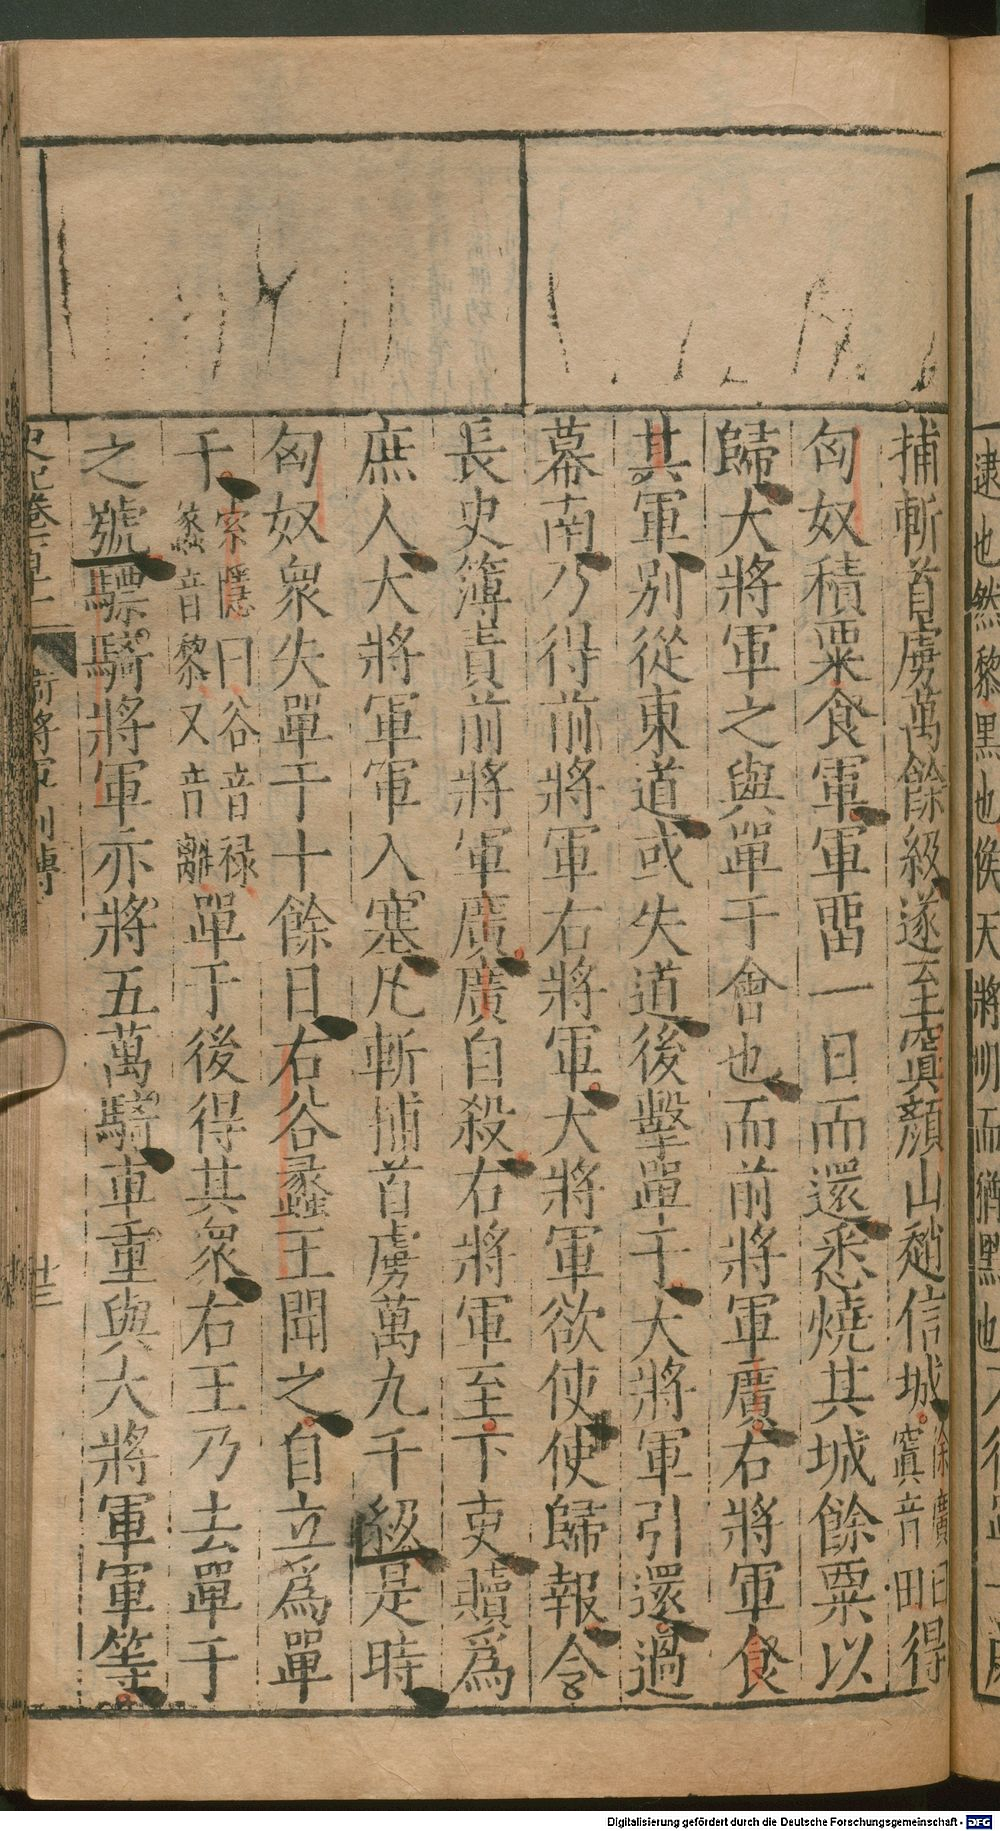 逮也然黎黑也候天將明而猶黑也
捕斬首虜萬餘級遂至窴顏山趙信城徐廣曰窴音田得
匈奴積粟食軍軍畱一日而還悉燒其城餘粟以
歸大將軍之與單于會也而前將軍廣右將軍食
其軍別從東道或失道後擊單于大將軍引還過
幕南乃得前將軍右將軍大將軍欲使使歸報令
長史簿責前將軍廣廣自殺右將軍至下吏贖爲
庶人大將軍軍入塞凡斬捕首虜萬九千級是時
匈奴衆失單于十餘日右谷蠡王聞之自立爲單
于索隱曰谷音祿蠡音黎又音離單于後得其衆右王乃去單于
之號驃騎將軍亦將五萬騎車重與大將軍軍等
史記卷百十一 衛將軍列傳 廿三
Digitalisierung gefördert durch die Deutsche Forschungsgemeinschaft - DFG